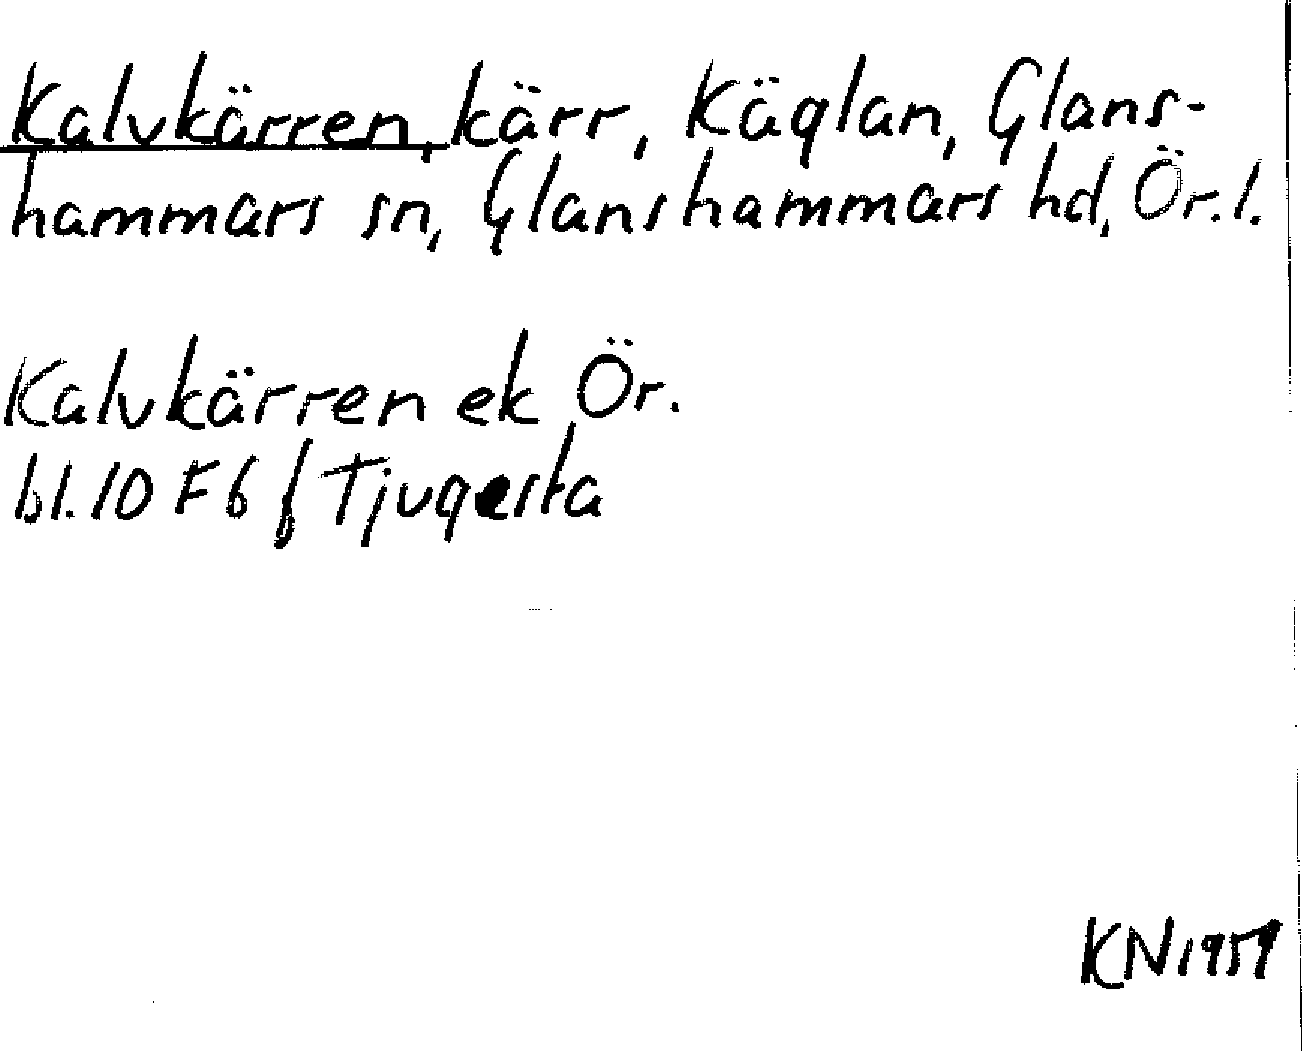 Kalvkärren, kärr, Käglan, Glans-
hammars sn, Glanshammars hd, Ör. l.
Kalvkärren ek Ör.
bl. 10 F6 f Tjugesta
KN 1959